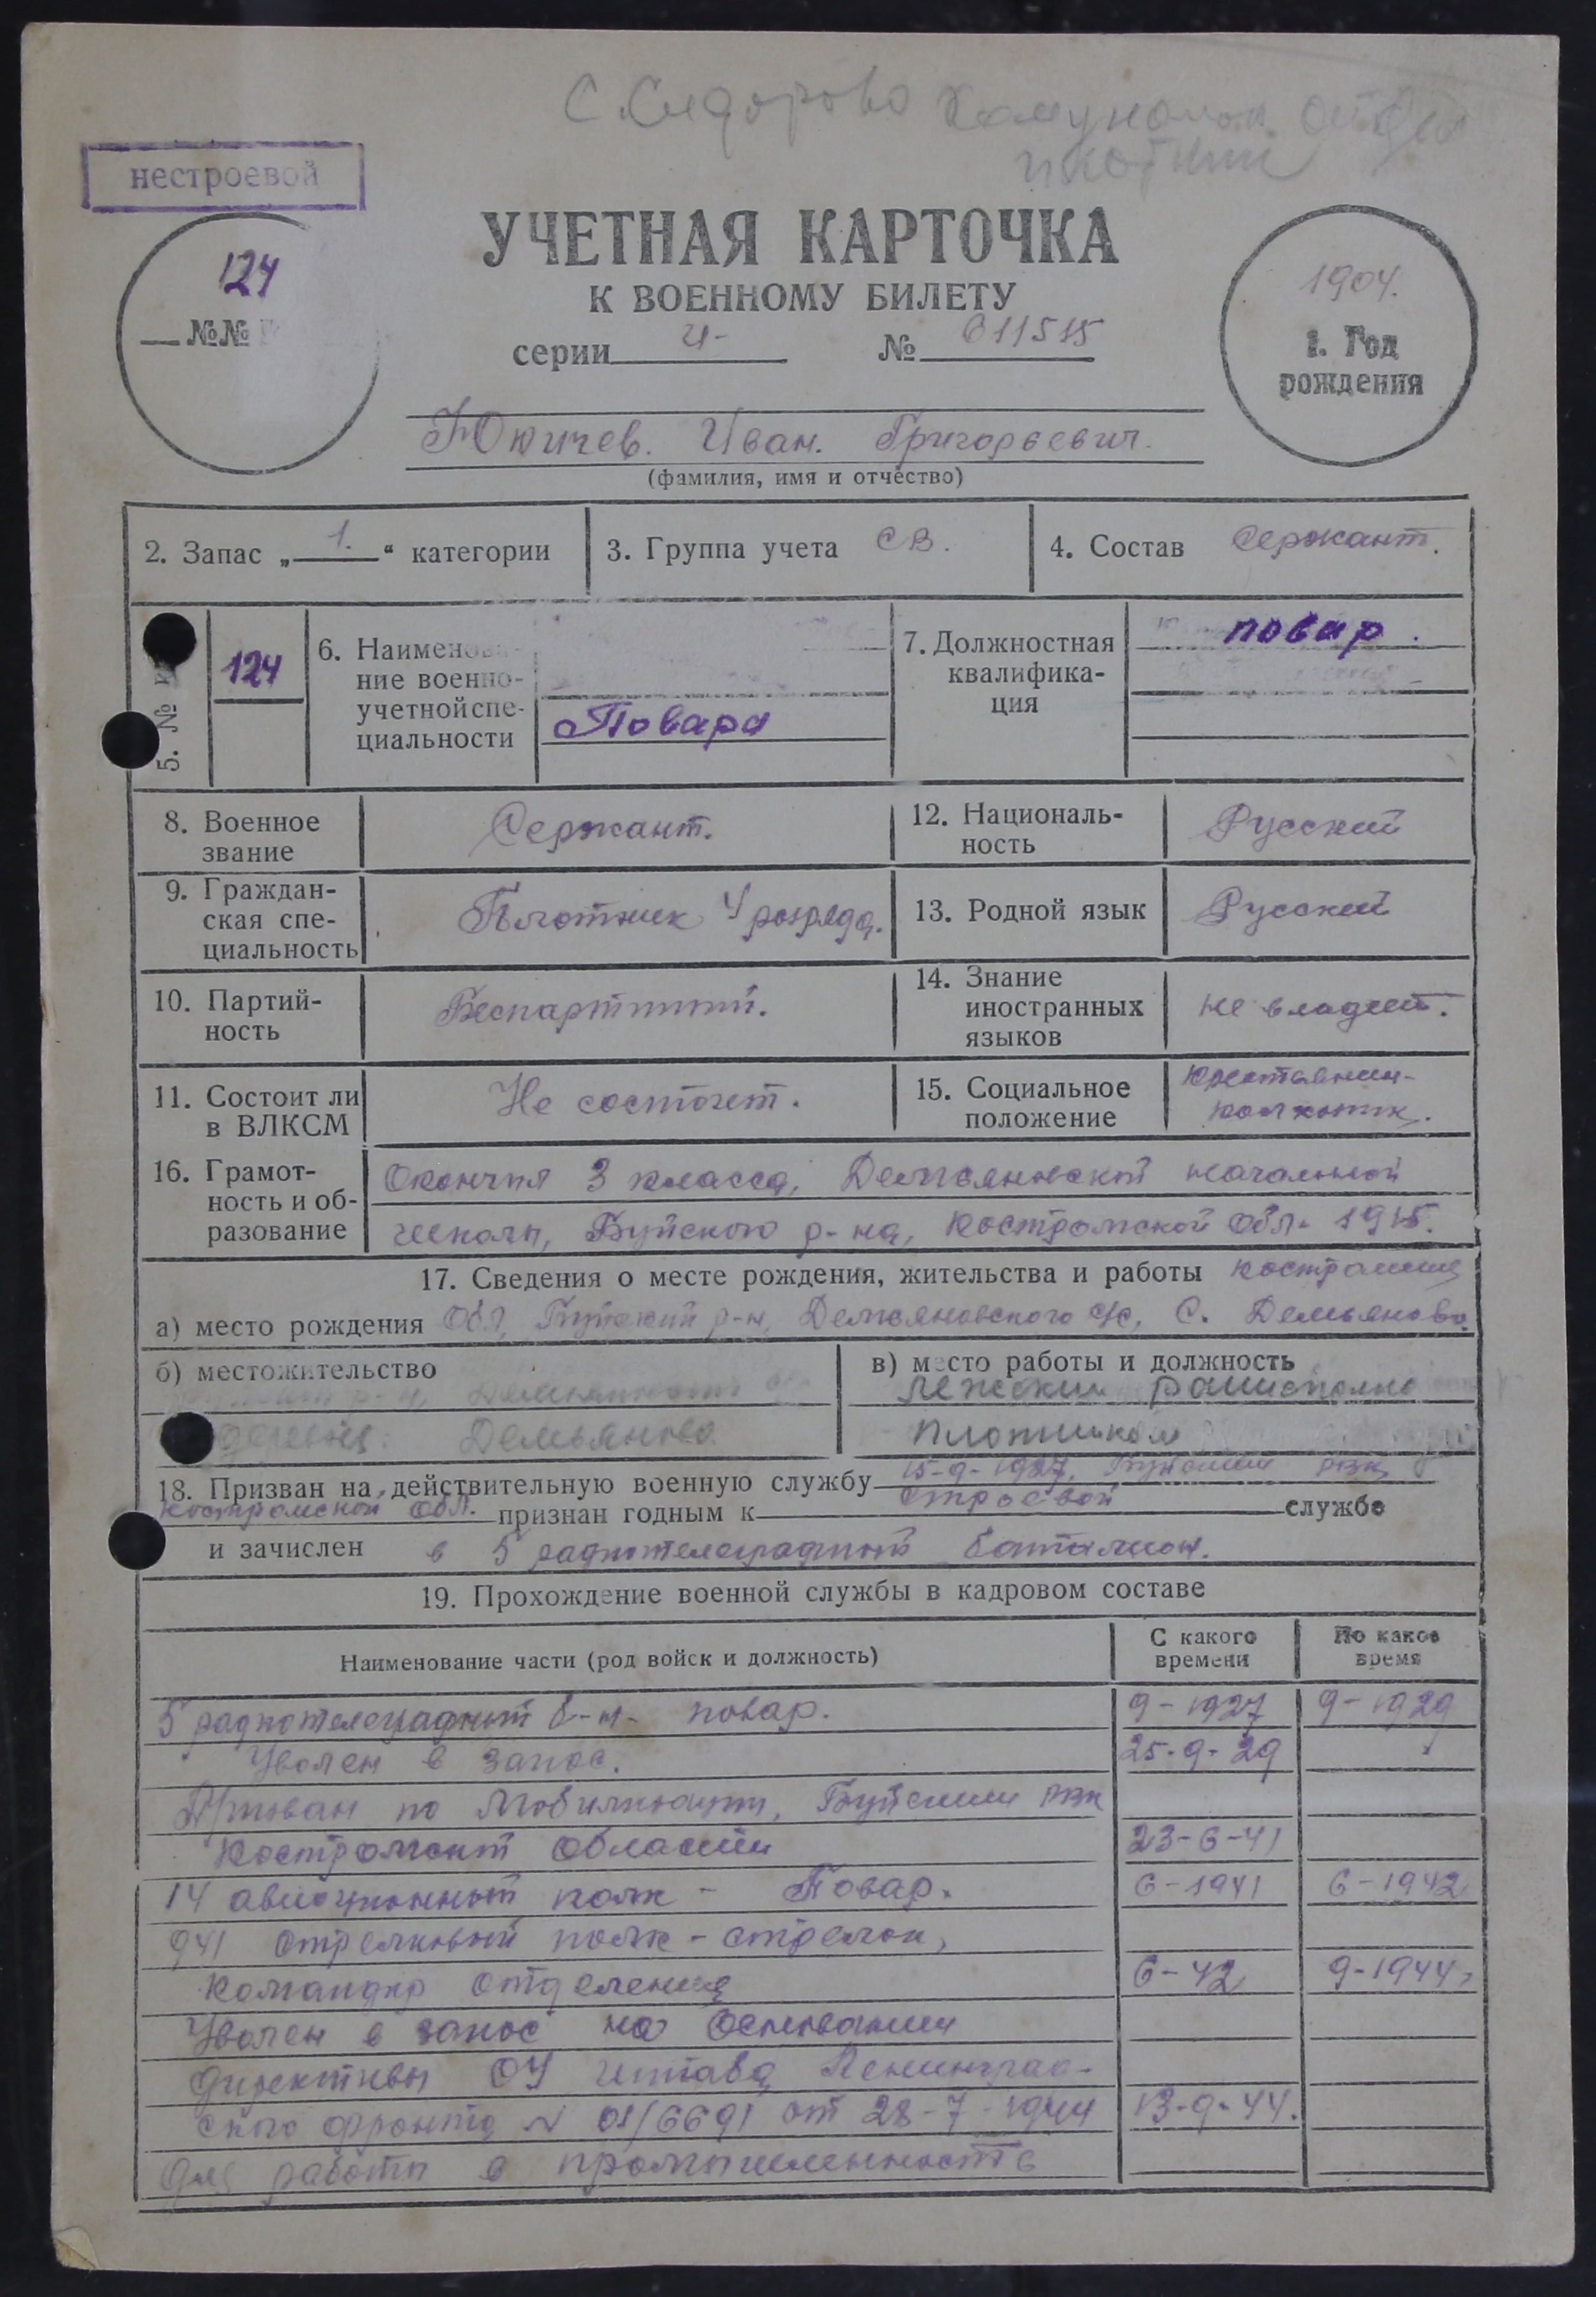 С. Сидорово
нестроевой
124
№№
УЧЕТНАЯ КАРТОЧКА
К ВОЕННОМУ БИЛЕТУ
серии И- № 011515
1904.
1. Год
рождения
Юничев. Иван. Григорьевич.
(фамилия, имя и отчество)
2. Запас „1.“ категории
3. Группа учета СВ.
4. Состав Сержант.
5. №
124
6. Наименова-
ние военно-
учетной спе-
циальности
Повара
7. Должностная
квалифика-
ция
повар.
8. Военное
звание
Сержант.
12. Националь-
ность
Русский
9. Граждан-
ская спе-
циальность
Плотник 4 розряда.
13. Родной язык
Русский
10. Партий-
ность
Беспартиный.
14. Знание
иностранных
языков
не владеет.
11. Состоит ли
в ВЛКСМ
Не состоит.
15. Социальное
положение
крестьянин-
колхозник.
16. Грамот-
ность и об-
разование
Окончил 3 класса, Демьяновской начальной
школы, Буйского р-на, Костромской обл. 1915.
17. Сведения о месте рождения, жительства и работы Костромская
а) место рождения Обл, Буйский р-н, Демьяновского с/с, С. Демьяново.
б) местожительство
деревня: Демьяново
в) место работы и должность
плотником
18. Призван на действительную военную службу 15-9-1927, Буйским рвк,
Костромской обл. признан годным к строевой службе
и зачислен в 5 радиотелеграфный батальон.
19. Прохождение военной службы в кадровом составе
Наименование части (род войск и должность)
С какого
времени
По какое
время
5 радиотелеграфный б-н- повар. 9-1927 9-1929
Уволен в запас. 25-9-29
Призван по мобилизации, Буйским рвк
Костромской области 23-6-41
14 авиационный полк - Повар. 6-1941 6-1942
941 стрелковый полк - стрелок,
командир отделения 6-42 9-1944
Уволен в запас на основании
директивы ОУ штаба Ленинград-
ского фронта № 01/6691 от 28-7-1944 13-9-44.
для работы в промышленность